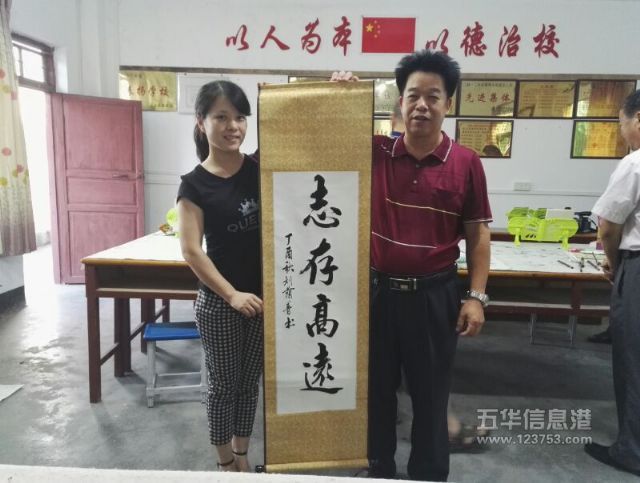 以人为本 以德治校
先进集体
QUEEN
志存高遠
丁酉秋刘
五华信息港
www.123753.com